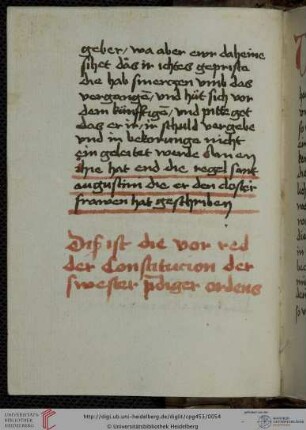 geber / wa aber ewr daheine
sihet das ir ichtes gepriste
die hab smerczen vmb das
vergangē / vnd hüt sich vor
dem künfftigē / vnd pitt got
das er ir / ir schuld vergebe
vnd in bekorunge nicht
ein geleitet werde Amen
hie hat end die regel sant
augustini die er den closter
frawen hat geschriben
Diß ist die vor red
der Constitucion der
swester p̄diger ordens
UNIVERSITÄTS-
BIBLIOTHEK
HEIDELBERG
http://digi.ub.uni-heidelberg.de/diglit/cpg453/0054
© Universitätsbibliothek Heidelberg